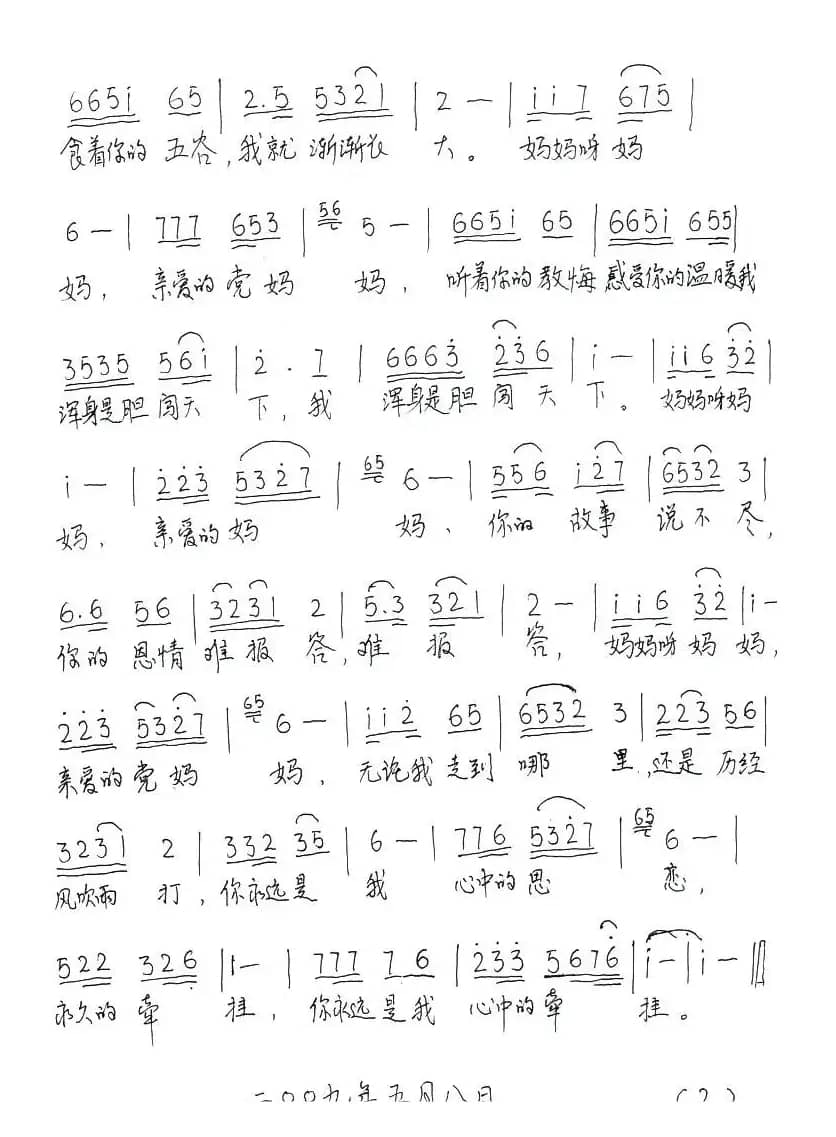 665i 65 | 2.5 5321 | 2 — | i i 7 675 |
食着你的 五谷，我就 渐渐长 大。 妈妈呀妈
6 — | 777 653 | 56 5 — | 665i 65 | 665i 655 |
妈， 亲爱的党妈 妈， 听着你的教悔感受你的温暖我
3535 56i | 2̇ . 7 | 6663̇ 2̇3̇6 | i — | i i 6 3̇2̇ |
浑身是胆闯天 下，我 浑身是胆闯天下。 妈妈呀妈
i — | 2̇2̇3̇ 5̇3̇2̇7 | 65 6 — | 556 i2̇7 | 6532 3 |
妈， 亲爱的妈 妈、 你的 故事 说不尽，
6.6 56 | 3231 2 | 5.3 321 | 2 — | i i 6 3̇2̇ | i —
你的 恩情难报答，难 报 答， 妈妈呀妈妈，
2̇2̇3̇ 5̇3̇2̇7 | 65 6 — | i i 2̇ 65 | 6532 3 | 223 56 |
亲爱的党妈 妈， 无论我走到 哪 里，还是 历经
3231 2 | 332 35 | 6 — | 776 53̇2̇7 | 65 6 — |
风吹雨 打，你永远是 我 心中的思 恋，
522 326 | 1 — | 777 76 | 2̇3̇3̇ 5676 | i — | i — ‖
永久的牵 挂， 你永远是我 心中的牵 挂。
二00九年五月八日 (2)